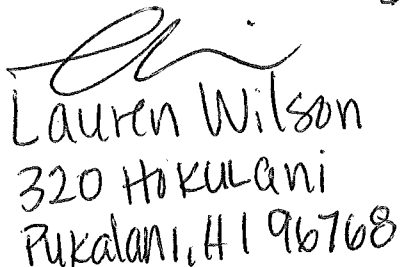 Lauren Wilson
320 Hokulani
Pukalani, HI 96768